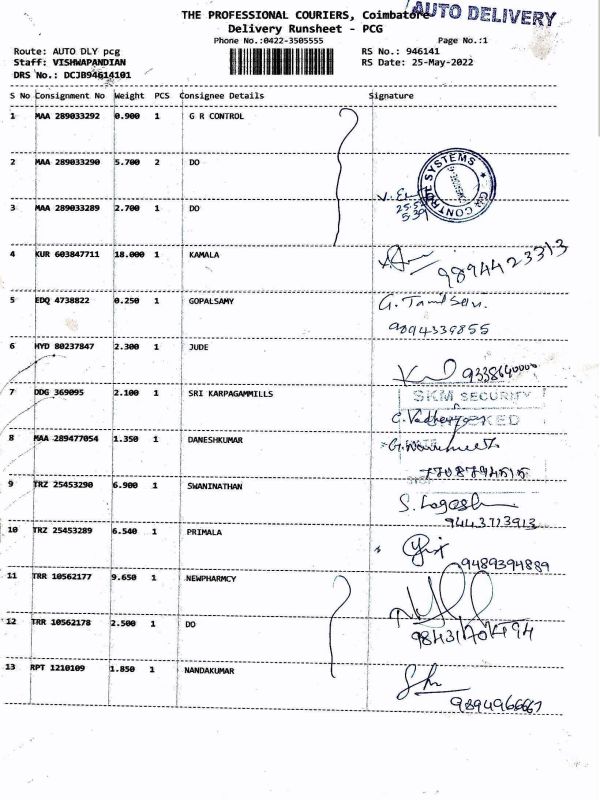 AUTO DELIVERY
THE PROFESSIONAL COURIERS, Coimbatore
Delivery Runsheet - PCG
Phone No.:0422-3505555 Page No.:1
Route: AUTO DLY pcg RS No.: 946141
Staff: VISHWAPANDIAN RS Date: 25-May-2022
DRS No.: DCJB94614101
S No Consignment No Weight PCS Consignee Details Signature
1 MAA 289033292 0.900 1 G R CONTROL
2 MAA 289033290 5.700 2 DO
3 MAA 289033289 2.700 1 DO
4 KUR 603847711 18.000 1 KAMALA
9894423313
5 EDQ 4738822 0.250 1 GOPALSAMY G. Tamil
9094339855
6 HYD 80237847 2.300 1 JUDE
7 DDG 369095 2.100 1 SRI KARPAGAMMILLS SKM SECURITY
8 MAA 289477054 1.350 1 DANESHKUMAR
9 TRZ 25453290 6.900 1 SWANINATHAN
9443713913
10 TRZ 25453289 6.540 1 PRIMALA
9489394889
11 TRR 10562177 9.650 1 NEWPHARMCY
12 TRR 10562178 2.500 1 DO
13 RPT 1210109 1.850 1 NANDAKUMAR
9894966667